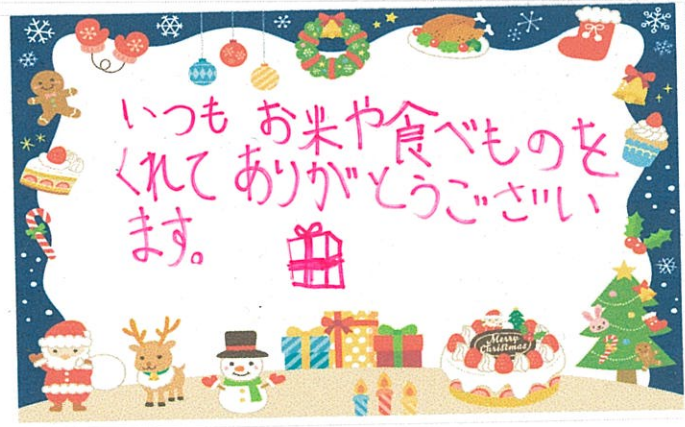 いつも お米や食べものを
くれて ありがとうござい
ます。
Merry
Christmas